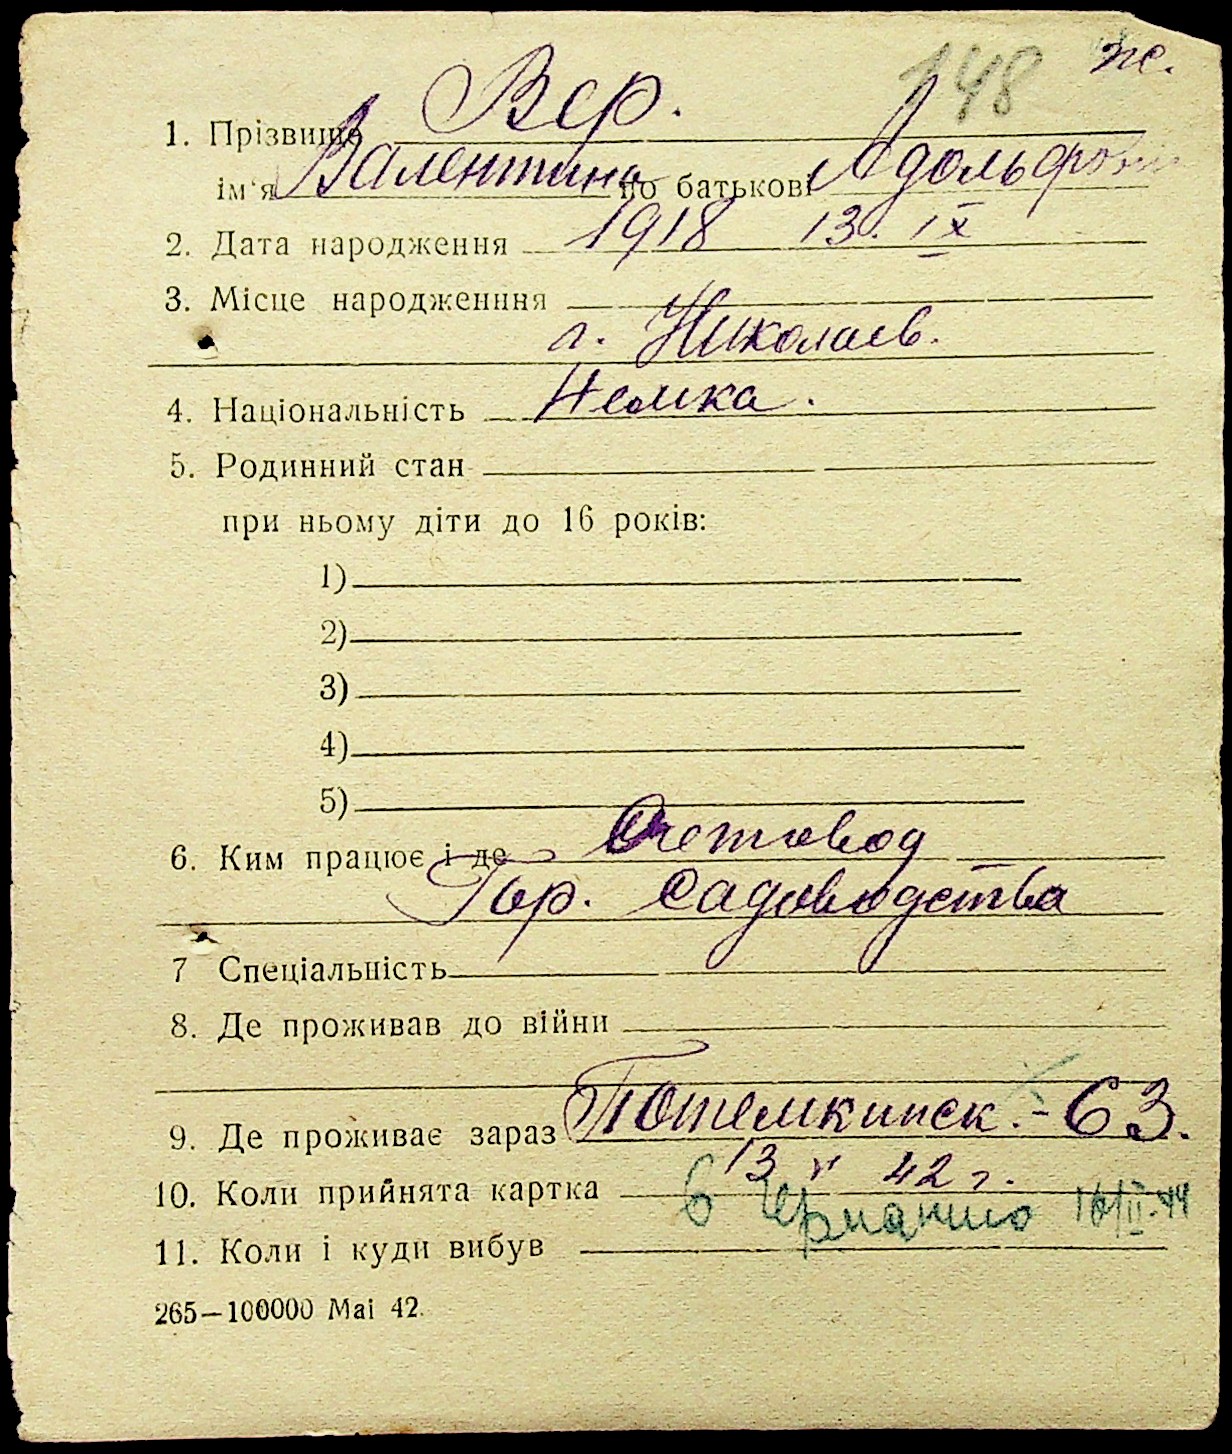 148 ж.
1. Прізвище Вер.
ім'я Валентина по батькові Адольфовн
2. Дата народження 1918 13. IX
3. Місце народженння
г. Николаев.
4. Національність Немка.
5. Родинний стан
при ньому діти до 16 років:
1)
2)
3)
4)
5)
6. Ким працює і де Счетовод
Гор. садоводства
7 Спеціальність
8. Де проживав до війни
9. Де проживає зараз Потемкинск. - 63.
10. Коли прийнята картка 13 V 42 г.
в Германию 16/II.44
11. Коли і куди вибув
265—100000 Mai 42.